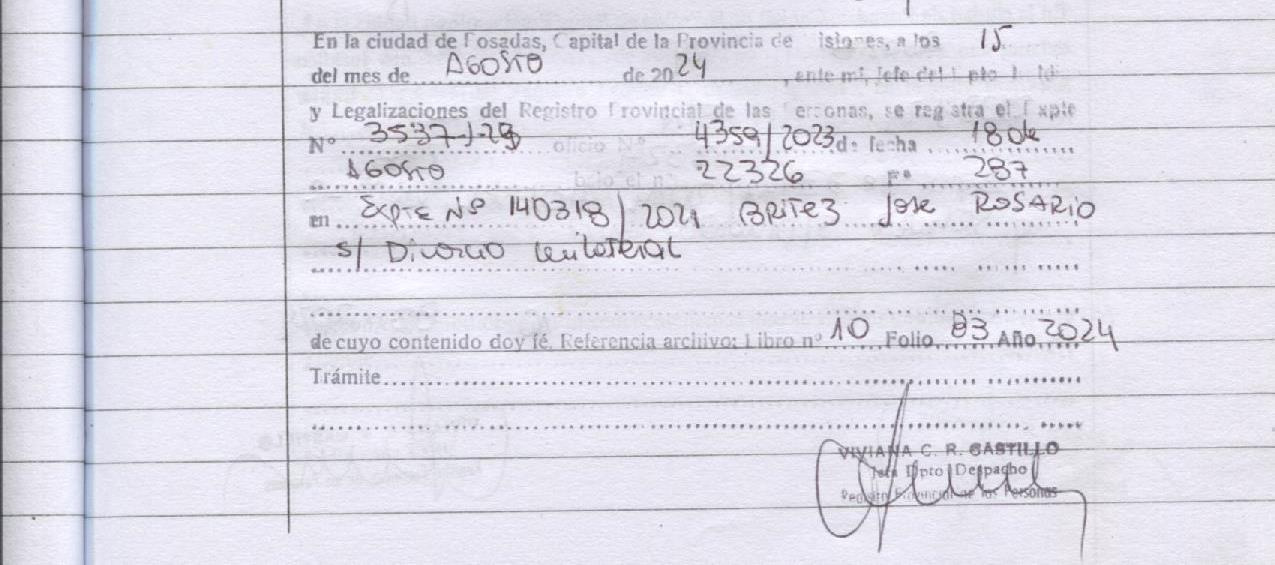 En la ciudad de Posadas, Capital de la Provincia de Misiones, a los 15
del mes de AGOSTO de 2024, ante mi, Jefe del Dpto
y Legalizaciones del Registro Provincial de las Personas, se registra el Expte
Nº oficio Nº 4359/2023 de fecha 18 de
AGOSTO bajo el nº 22326 Fº 287
en Expte Nº 140318/2021 BRITEZ Jose ROSARIO
s/ Divorcio Unilateral
de cuyo contenido doy fé. Referencia archivo: Libro nº 10 Folio 83 Año 2024
Trámite
VIVIANA C. R. CASTILLO
Jefa Dpto Despacho
Registro Provincial de las Personas